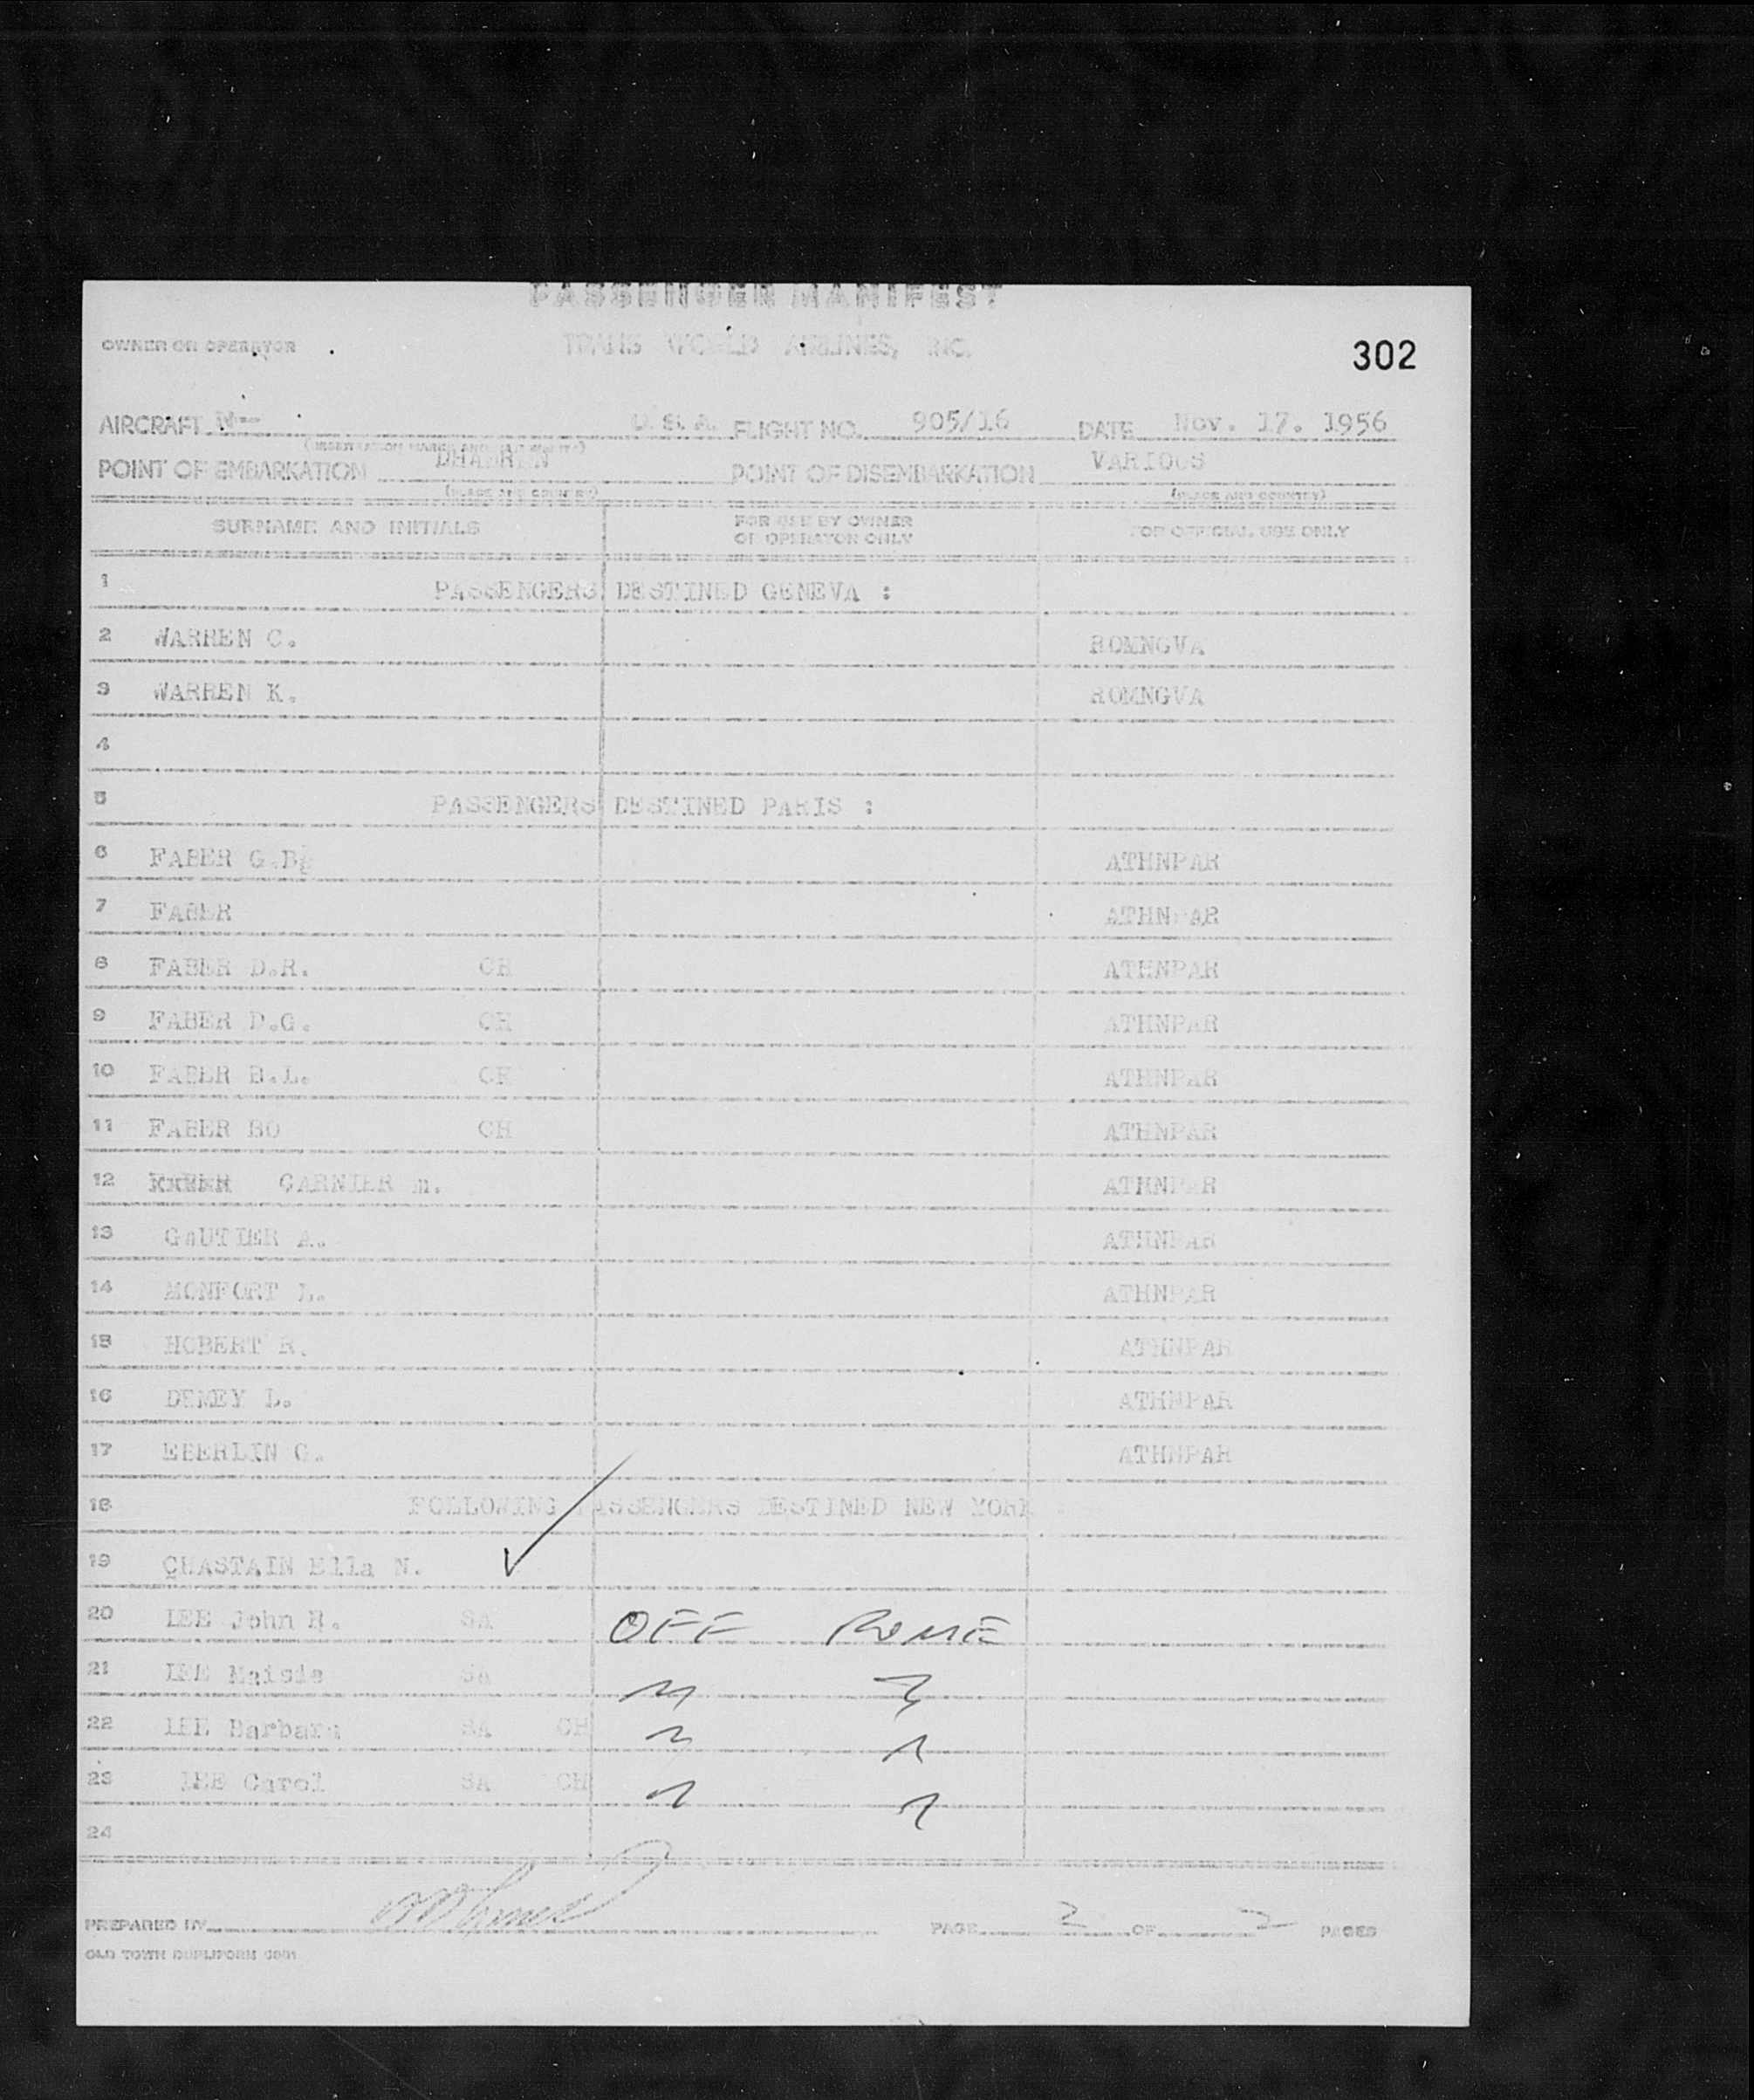 PASSENGER MANIFEST
OWNER OR OPERATOR TRANS WORLD AIRLINES, INC. 302
AIRCRAFT N-- U. S. A. FLIGHT NO. 905/16 DATE Nov. 17. 1956
(REGISTRATION MARKS AND NATIONALITY)
POINT OF EMBARKATION DHAHRAN POINT OF DISEMBARKATION VARIOUS
(PLACE AND COUNTRY) (PLACE AND COUNTRY)
SURNAME AND INITIALS FOR USE BY OWNER OR OPERATOR ONLY FOR OFFICIAL USE ONLY
1 PASSENGERS DESTINED GENEVA :
2 WARREN C. ROMNGVA
3 WARREN K. ROMNGVA
4
5 PASSENGERS DESTINED PARIS :
6 FABER G.B. ATHNPAR
7 FABER ATHNPAR
8 FABER D.R. CH ATHNPAR
9 FABER D.G. CH ATHNPAR
10 FABER B.L. CH ATHNPAR
11 FABER BO CH ATHNPAR
12 CARNIER m. ATHNPAR
13 GAUTIER A. ATHNPAR
14 MONFORT L. ATHNPAR
15 HOBERT R. ATHNPAR
16 DEMEY L. ATHNPAR
17 EBERLIN G. ATHNPAR
18 FOLLOWING PASSENGERS DESTINED NEW YORK
19 CHASTAIN Ella N.
20 LEE John R. SA OFF ROME
21 LEE Maisie SA " "
22 LEE Barbara SA CH " "
23 LEE Carol SA CH " "
24
PREPARED BY PAGE 2 OF 2 PAGES
OLD TOWN DUPLIFORM